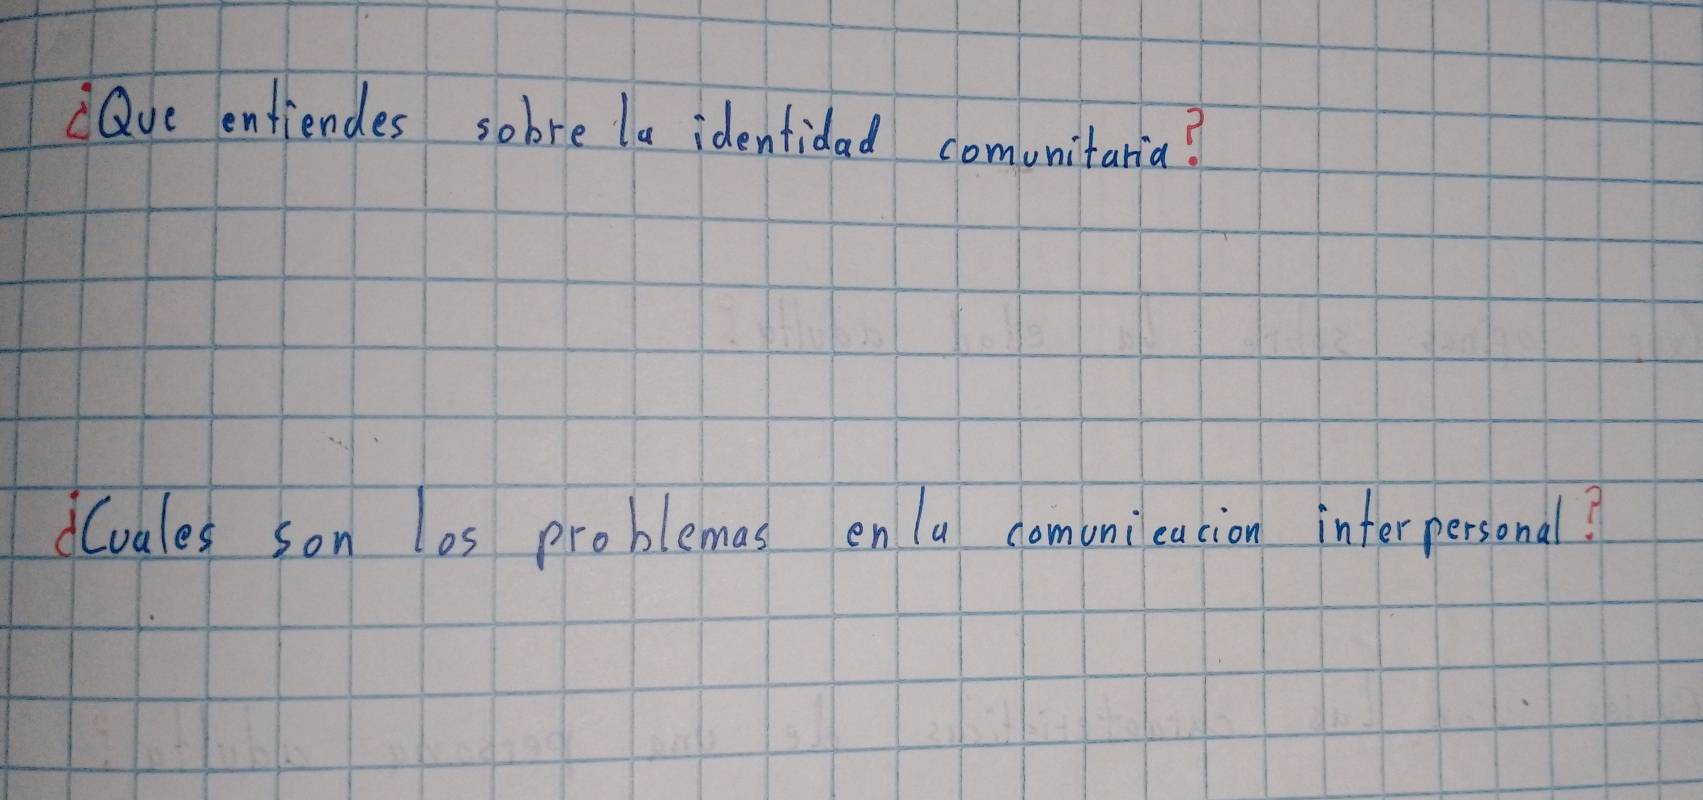 ¿Que entiendes sobre la identidad comunitaria?
¿Cuales son los problemas en la comunicacion interpersonal?